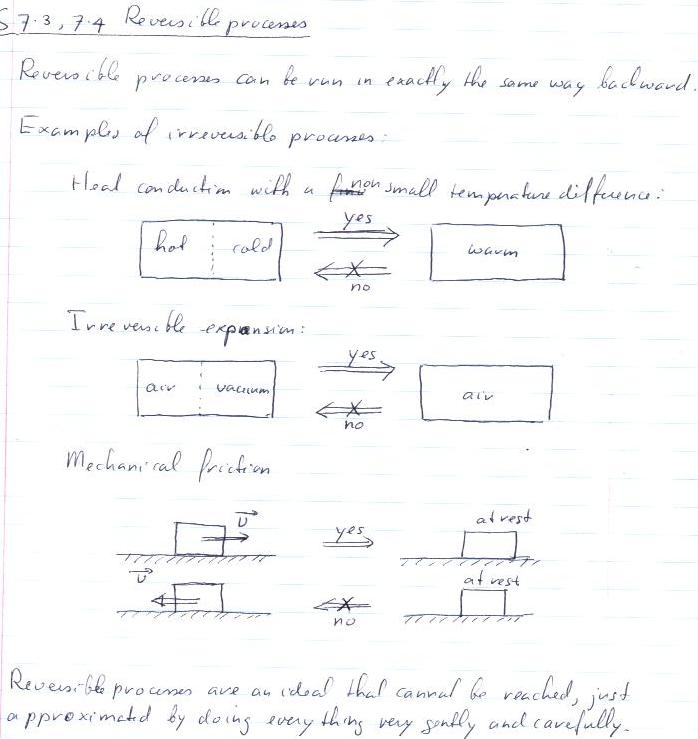 § 7.3, 7.4 Reversible processes
Reversible processes can be run in exactly the same way backward.
Examples of irreversible processes:
Heat conduction with a non small temperature difference:
yes
hot cold warm
no
Irreversible expansion:
yes
air vacuum air
no
Mechanical friction
v yes at rest
v at rest
no
Reversible processes are an ideal that cannot be reached, just
approximated by doing every thing very gently and carefully.